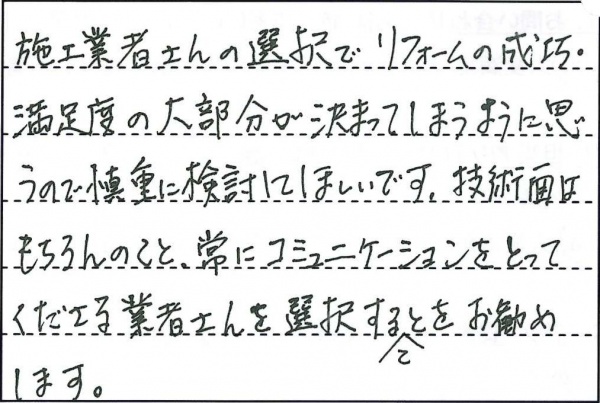 施工業者さんの選択でリフォームの成功・
満足度の大部分が決まってしまうように思
うので慎重に検討してほしいです。技術面は
もちろんのこと、常にコミュニケーションをとって
くださる業者さんを選択することをお勧め
します。